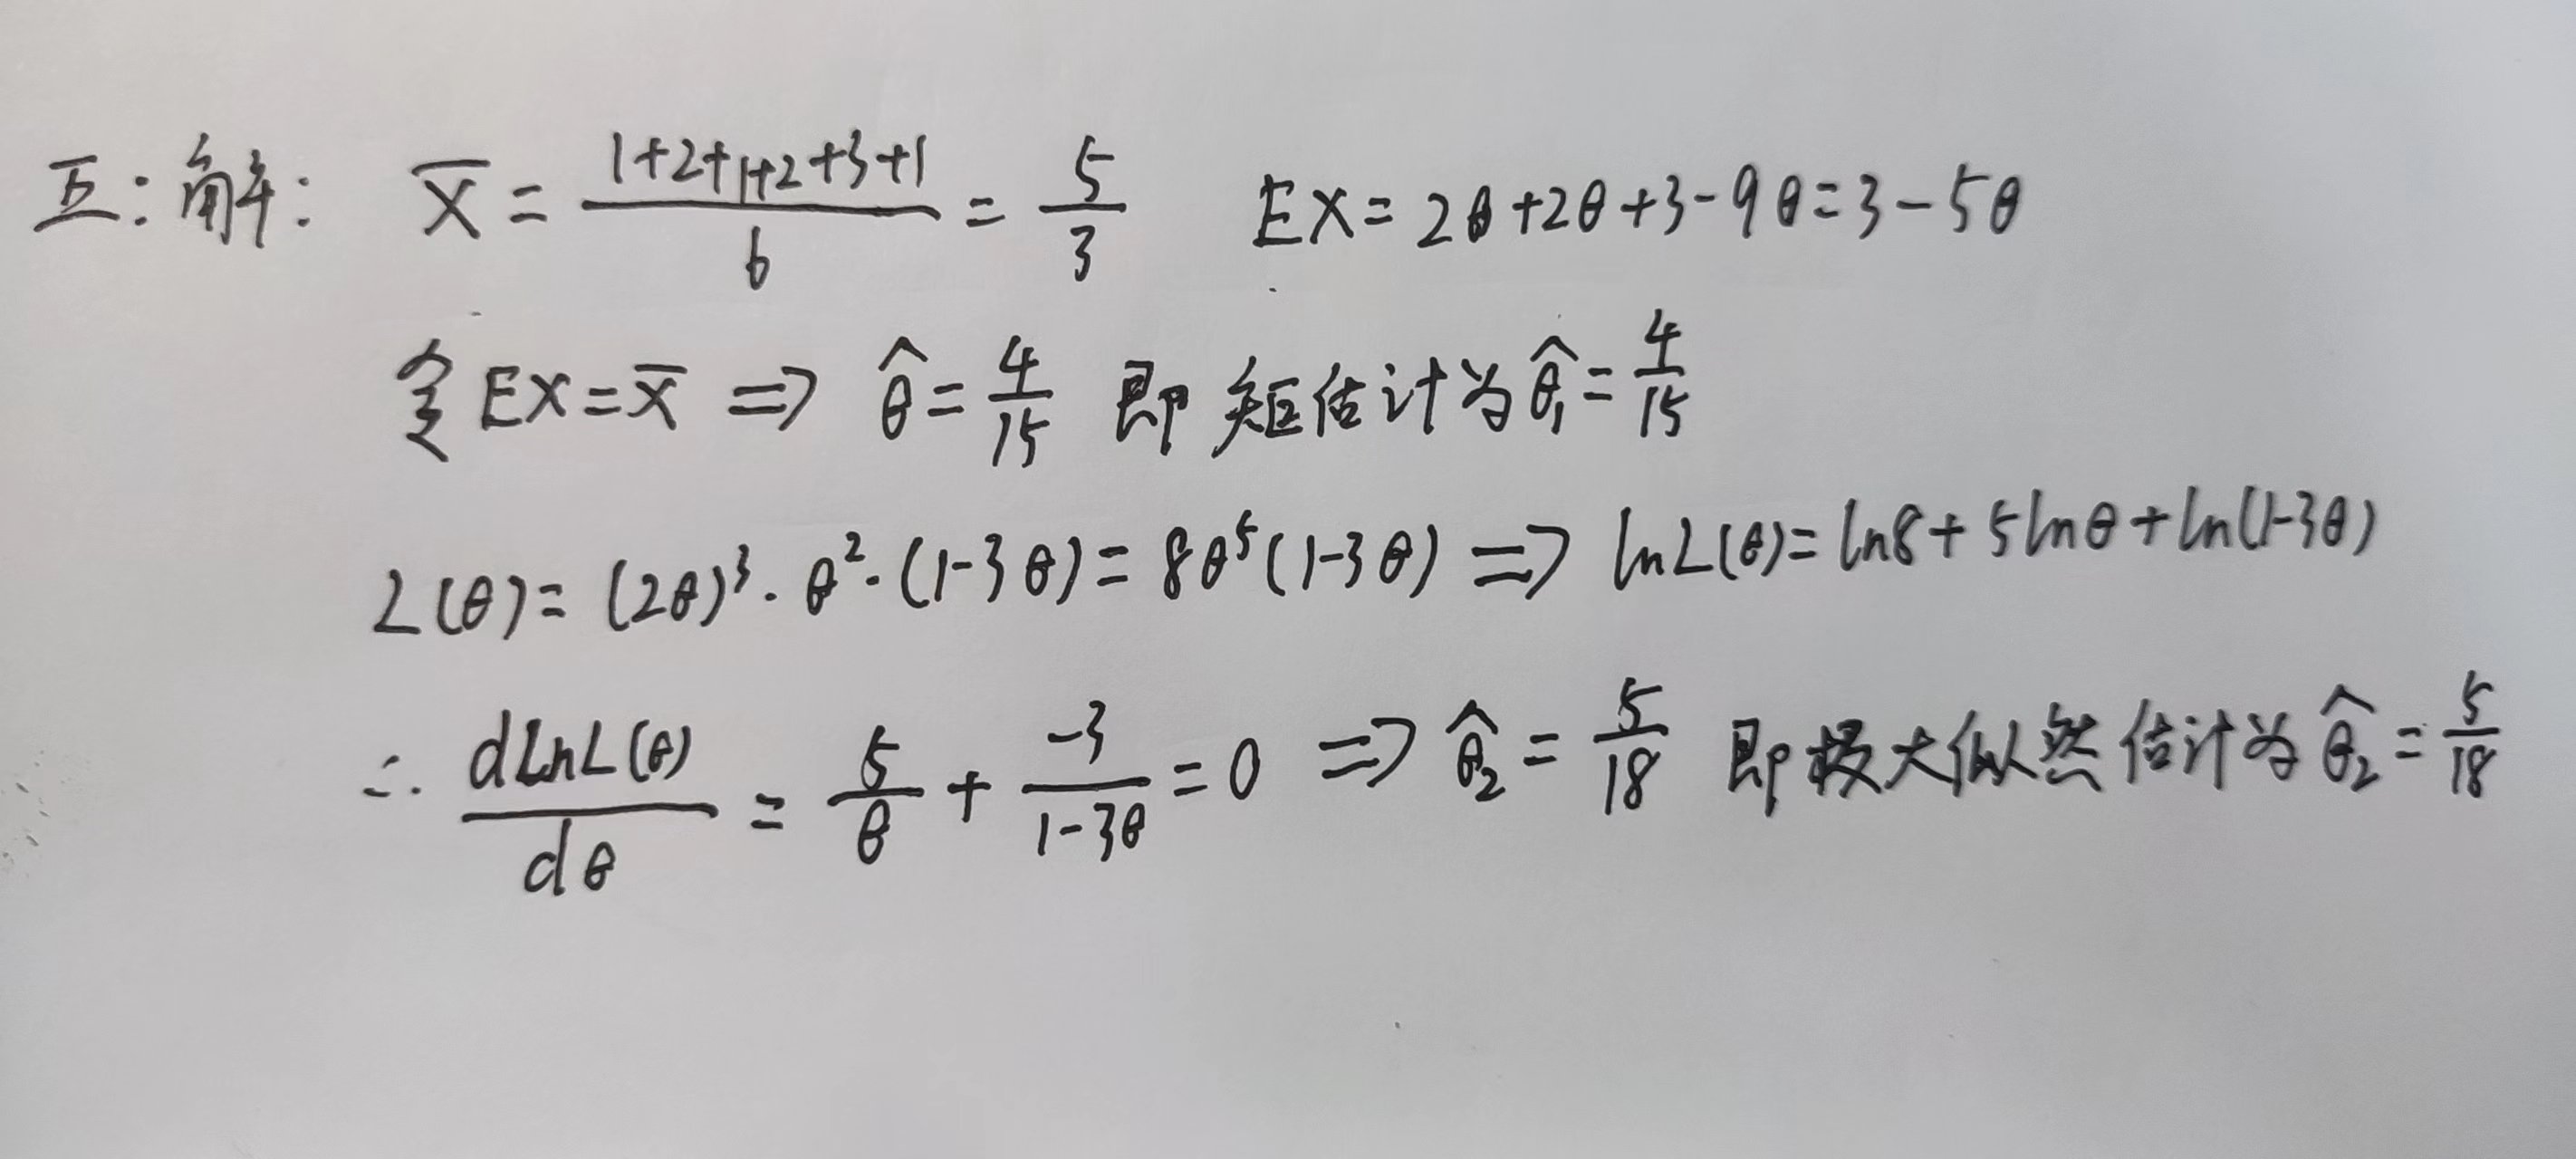 五:解: X̄ = (1+2+1+2+3+1)/6 = 5/3 EX = 2θ+2θ+3-9θ=3-5θ
令 EX = X̄ => θ̂ = 4/15 即矩估计为 θ̂₁ = 4/15
L(θ) = (2θ)³·θ²·(1-3θ) = 8θ⁵(1-3θ) => lnL(θ) = ln8+5lnθ+ln(1-3θ)
∴ dlnL(θ)/dθ = 5/θ + -3/(1-3θ) = 0 => θ̂₂ = 5/18 即极大似然估计为 θ̂₂ = 5/18